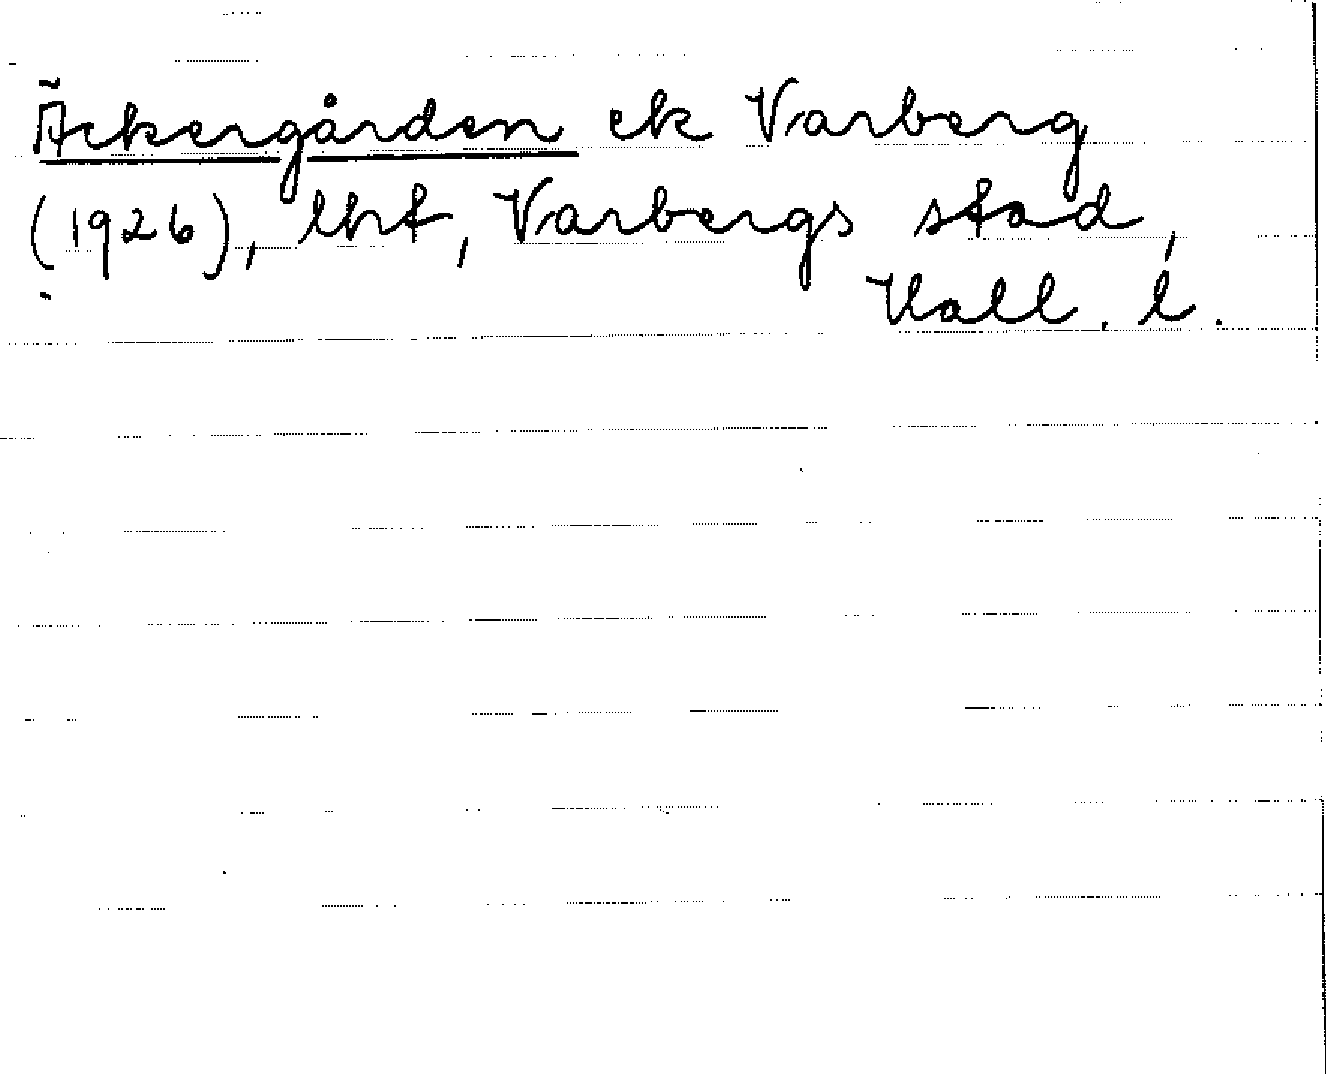 Äckergården ek Varberg
(1926), lhf, Varbergs stad,
Hall. l.